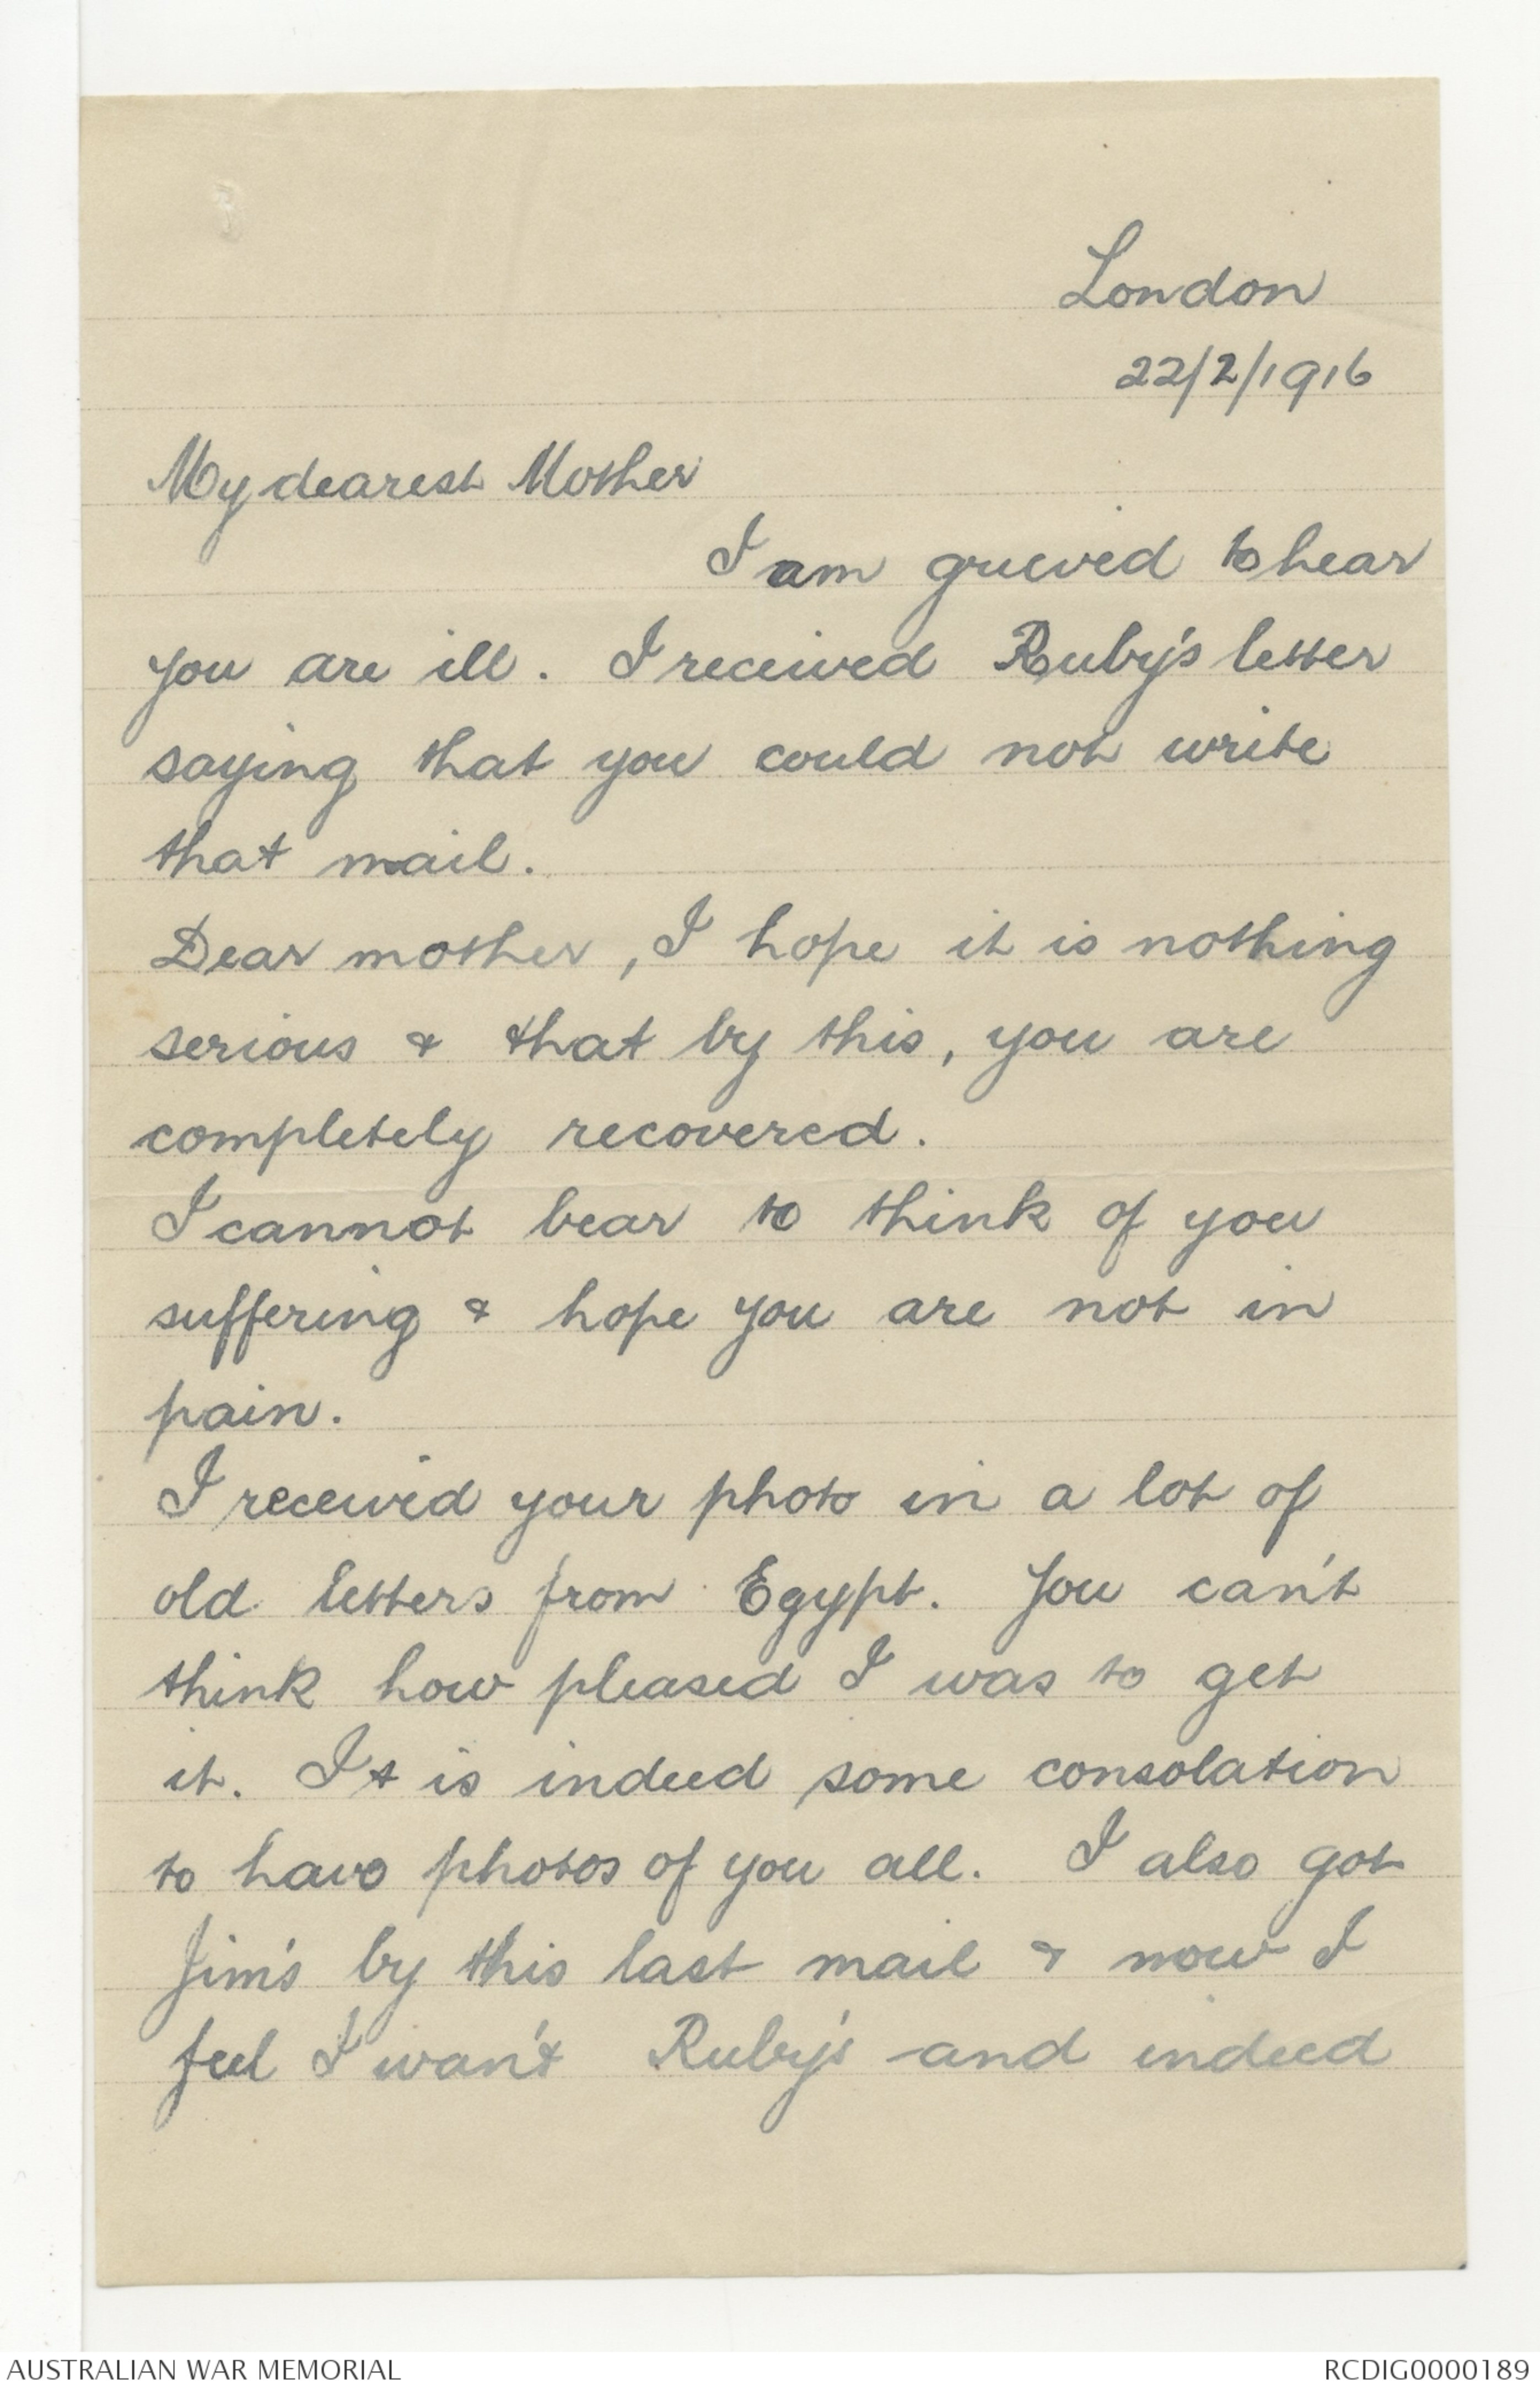 London
22/2/1916
My dearest Mother
I am grieved to hear
you are ill. I received Ruby's letter
saying that you could not write
that mail.
Dear mother, I hope it is nothing
serious & that by this, you are
completely recovered.
I cannot bear to think of you
suffering & hope you are not in
pain.
I received your photo in a lot of
old letters from Egypt. You can't
think how pleased I was to get
it. It is indeed some consolation
to have photos of you all. I also got
Jim's by this last mail & now I
feel I wan't Ruby's and indeed
AUSTRALIAN WAR MEMORIAL
RCDIG0000189